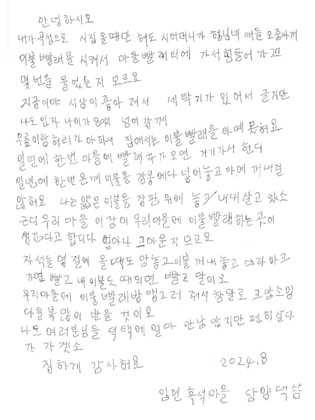 안녕하시오
내가 곡성으로 시집 올때만 해도 시어머니가 형님네 애들 오줌싸게
이불 빨래를 시켜서 마을 빨래터에 가서 힘들어 가꼬
몇번을 울었는지 모르오
지금이야 시상이 좋아져서 세탁기가 있어서 글지만
나도 인자 나이가 80이 넘어갑께
무릎이랑 허리가 아파서 집에서는 이불 빨래를 아예 못해요
일년에 한번 마을에 빨래차가 오면 거기가서 헌디
일년에 한번은 겨 이불을 장롱에다 넣어놓고 아예 꺼내덜
않혀요 나는 얇은 이불을 장판 위에 놓고 내내 살고 있소
근디 우리 마을 이장이 우리 마을에 이불 빨래하는 곳이
생긴다고 합디다 얼마나 고마운지 모르오
자석들 명절에 올때도 맘 놓고 이불 꺼내 놓고 자라하고
가면 빨고 내 이불도 때 되면 빨고 말이오
우리마을에 이불 빨래방 맹그러 줘서 참말로 고맙소잉
다들 복 많이 받을 것이오
나도 여러분님들 덕택에 얼마 안남았지만 편히 살다
가 가겟소
징하게 감사허요 2024.8
입면 흑석마을 담양댁 씀